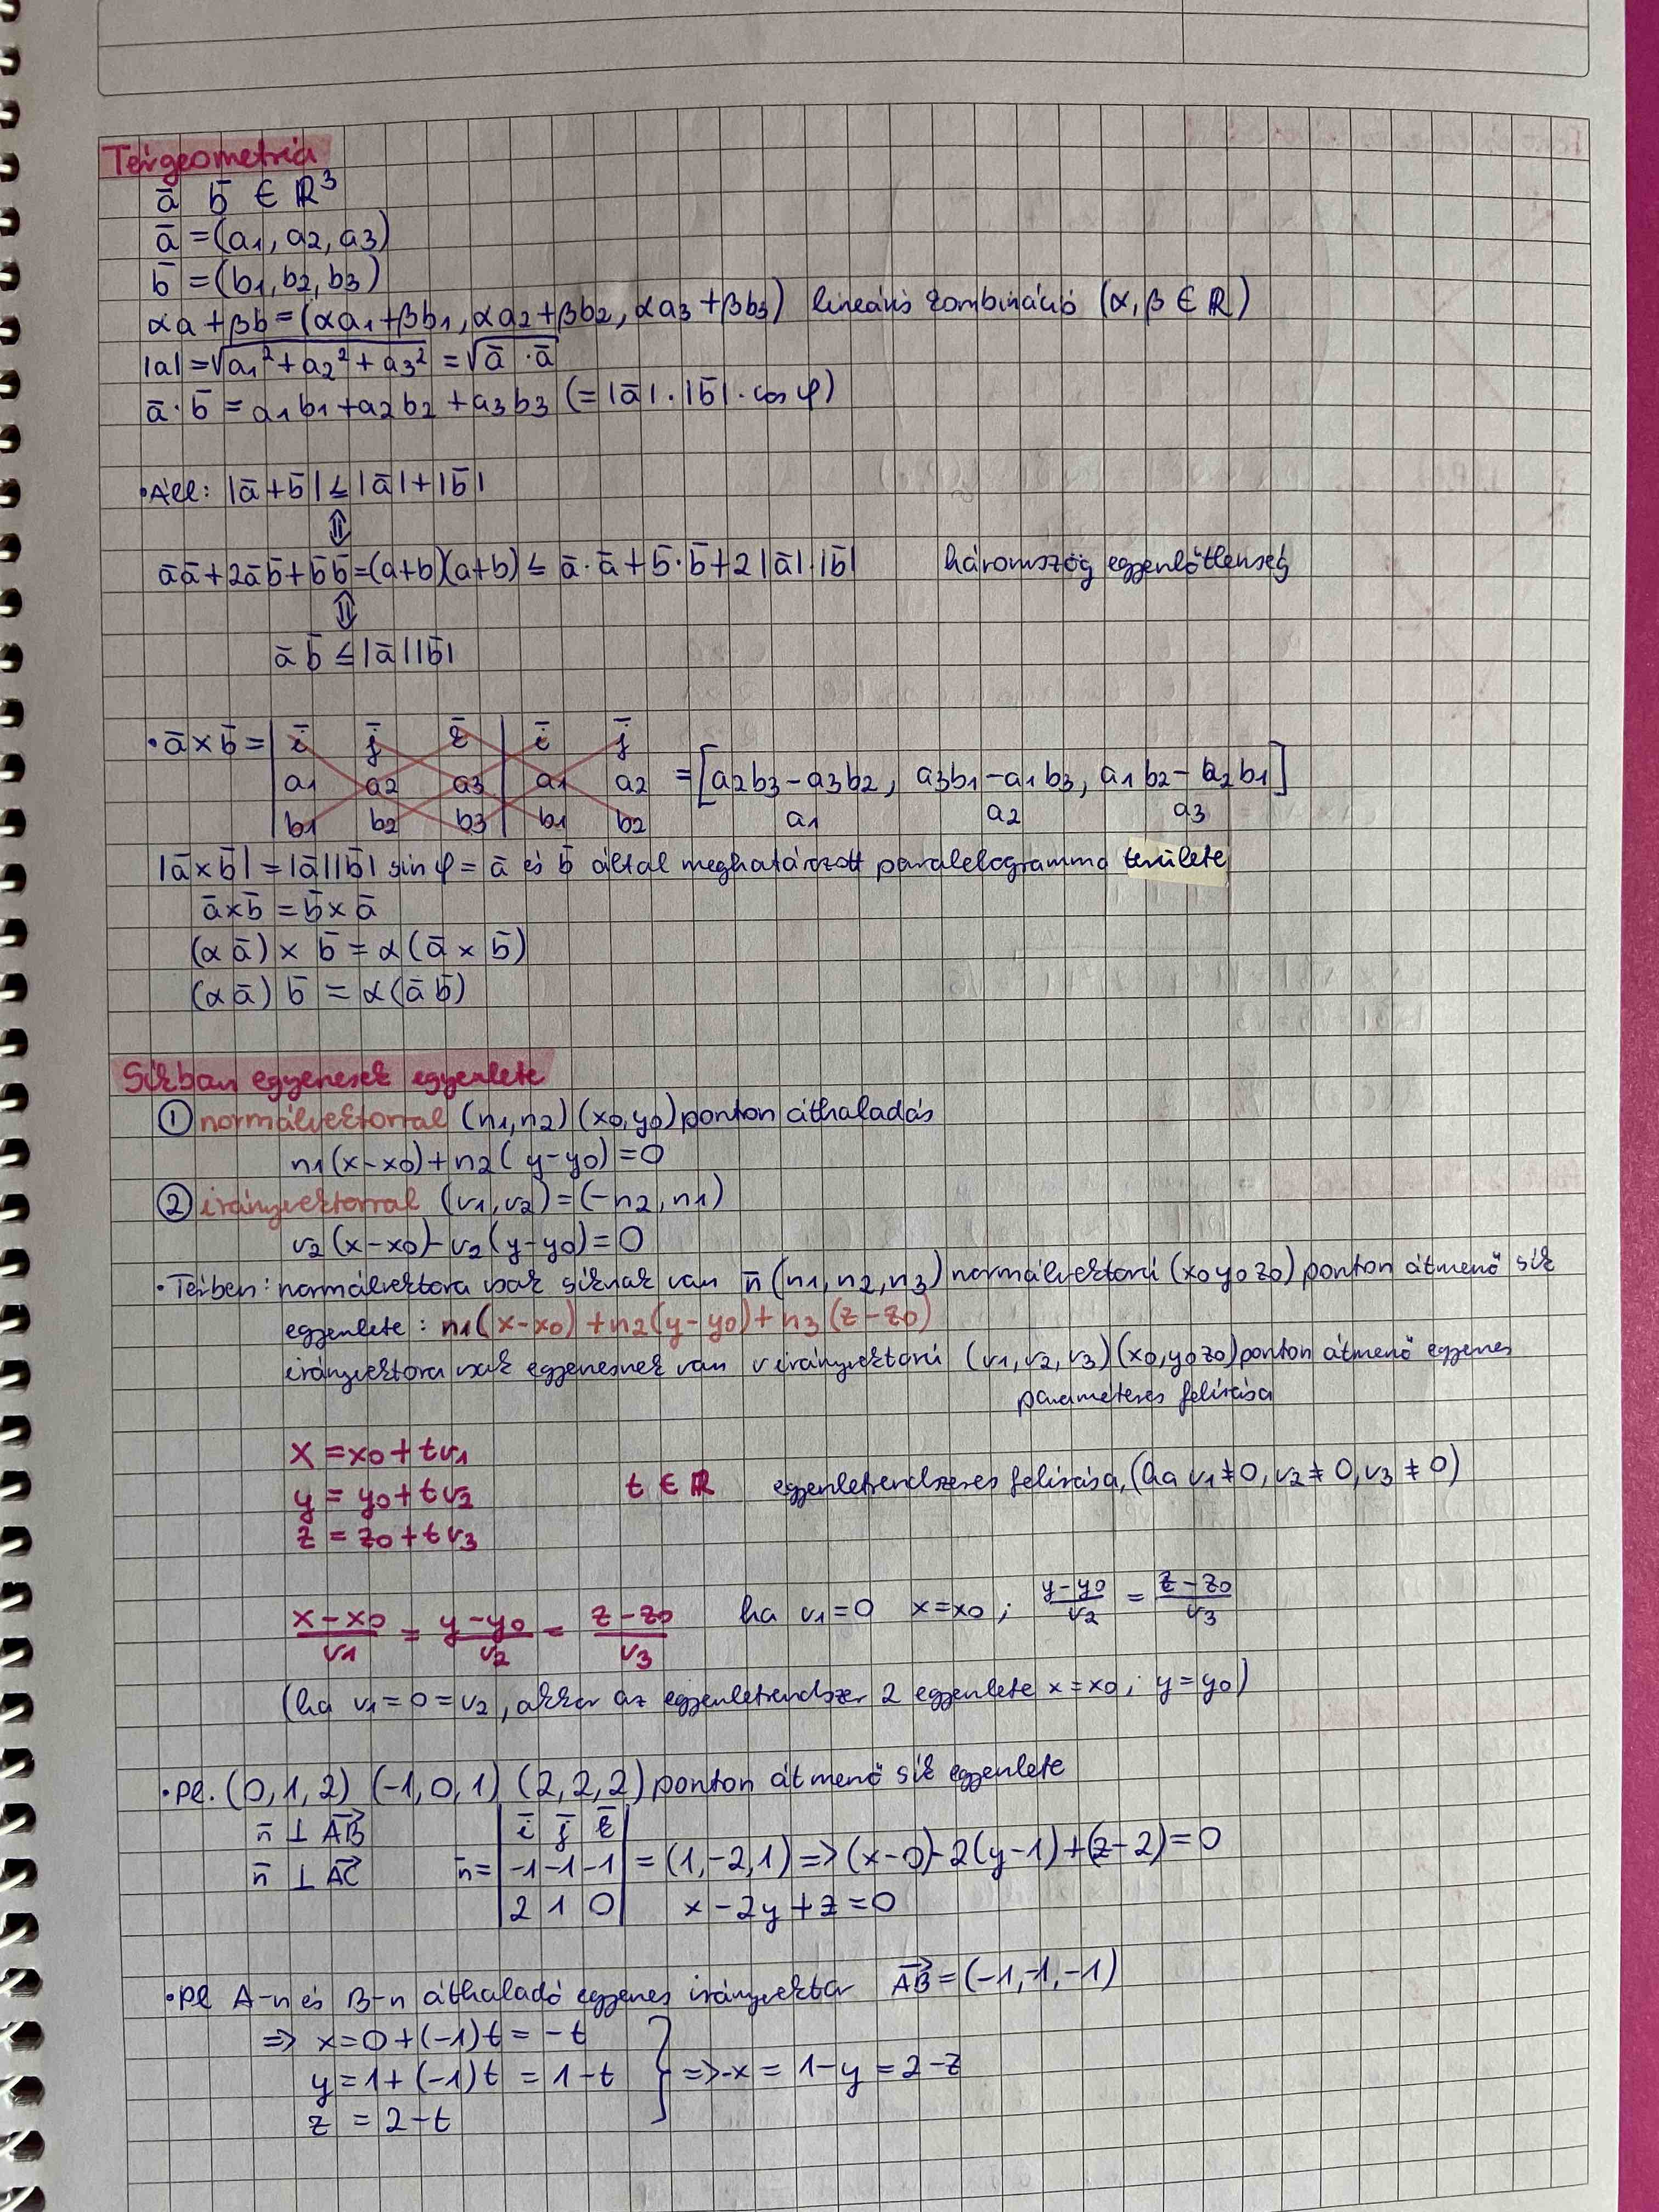 Térgeometria
ā b̄ ∈ ℝ³
ā = (a1, a2, a3)
b̄ = (b1, b2, b3)
αa + βb = (αa1 + βb1, αa2 + βb2, αa3 + βb3) lineáris kombináció (α, β ∈ ℝ)
|a| = √(a1² + a2² + a3²) = √(ā · ā)
ā · b̄ = a1b1 + a2b2 + a3b3 (= |ā| · |b̄| · cos φ)
• Áll: |ā + b̄| ≤ |ā| + |b̄|
⇕
āā + 2āb̄ + b̄b̄ = (a+b)(a+b) ≤ ā·ā + b̄·b̄ + 2|ā|·|b̄| háromszög egyenlőtlenség
⇕
ā b̄ ≤ |ā||b̄|
• ā × b̄ = | ī j̄ k̄ | ī j̄
a1 a2 a3 a1 a2 = [a2b3 − a3b2, a3b1 − a1b3, a1b2 − a2b1]
b1 b2 b3 | b1 b2 a1 a2 a3
|ā × b̄| = |ā||b̄| sin φ = ā és b̄ által meghatározott paralelogramma területe
ā × b̄ = b̄ × ā
(αā) × b̄ = α(ā × b̄)
(αā) b̄ = α(ā b̄)
Síkban egyenesek egyenlete
① normálvektorral (n1, n2) (x0, y0) ponton áthaladás
n1(x−x0) + n2(y−y0) = 0
② irányvektorral (v1, v2) = (−n2, n1)
v2(x−x0) − v2(y−y0) = 0
• Térben: normálvektora csak síknak van n̄(n1, n2, n3) normálvektorú (x0 y0 z0) ponton átmenő sík
egyenlete: n1(x−x0) + n2(y−y0) + n3(z−z0)
irányvektora csak egyenesnek van v irányvektorú (v1, v2, v3) (x0, y0 z0) ponton átmenő egyenes
paraméteres felírása
x = x0 + tv1
y = y0 + tv2 t ∈ ℝ egyenletrendszeres felírása, (ha v1 ≠ 0, v2 ≠ 0, v3 ≠ 0)
z = z0 + tv3
(x−x0)/v1 = (y−y0)/v2 = (z−z0)/v3 ha v1 = 0 x = x0 ; (y−y0)/v2 = (z−z0)/v3
(ha v1 = 0 = v2, akkor az egyenletrendszer 2 egyenlete x = x0 ; y = y0)
• Pl. (0,1,2) (−1,0,1) (2,2,2) ponton átmenő sík egyenlete
n̄ ⊥ AB→ | ī j̄ k̄ |
n̄ ⊥ AC→ n̄ = | −1 −1 −1 | = (1,−2,1) => (x−0)−2(y−1)+(z−2) = 0
| 2 1 0 | x − 2y + z = 0
• Pl A-n és B-n áthaladó egyenes irányvektor AB→ = (−1,−1,−1)
=> x = 0 + (−1)t = −t
y = 1 + (−1)t = 1−t } => −x = 1−y = 2−z
z = 2−t